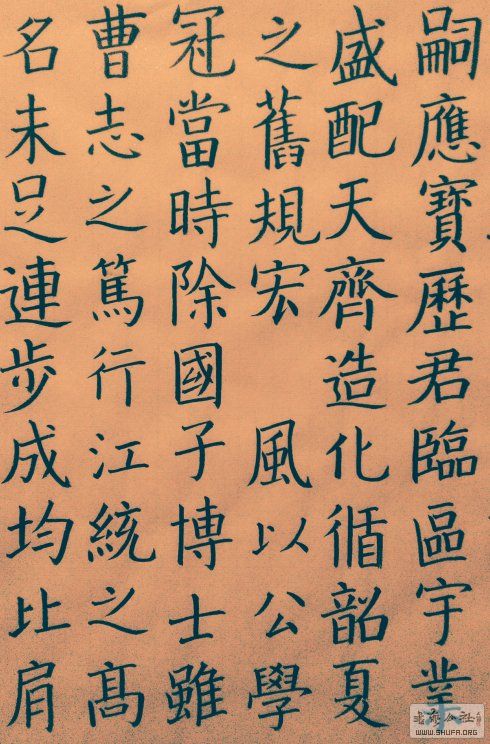 嗣應寶歷君臨區宇業
盛配天齊造化循韶夏
之舊規宏風以公學
冠當時除國子博士雖
曹志之篤行江統之高
名未足連步成均比肩
WWW.SHUFA.ORG